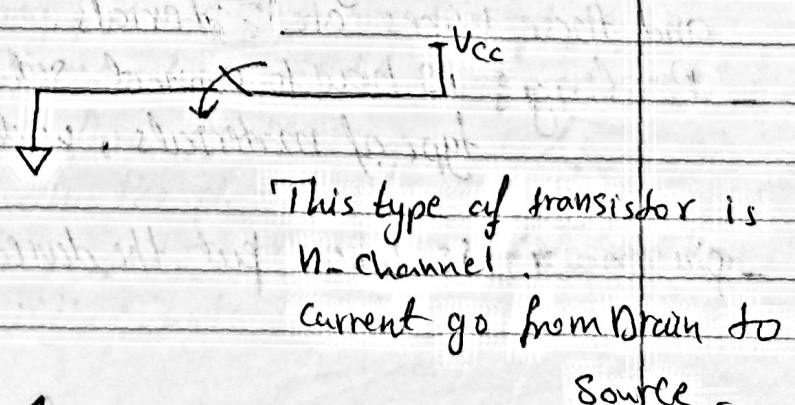 Vcc
This type of transistor is
n-channel.
Current go from Drain to
Source.